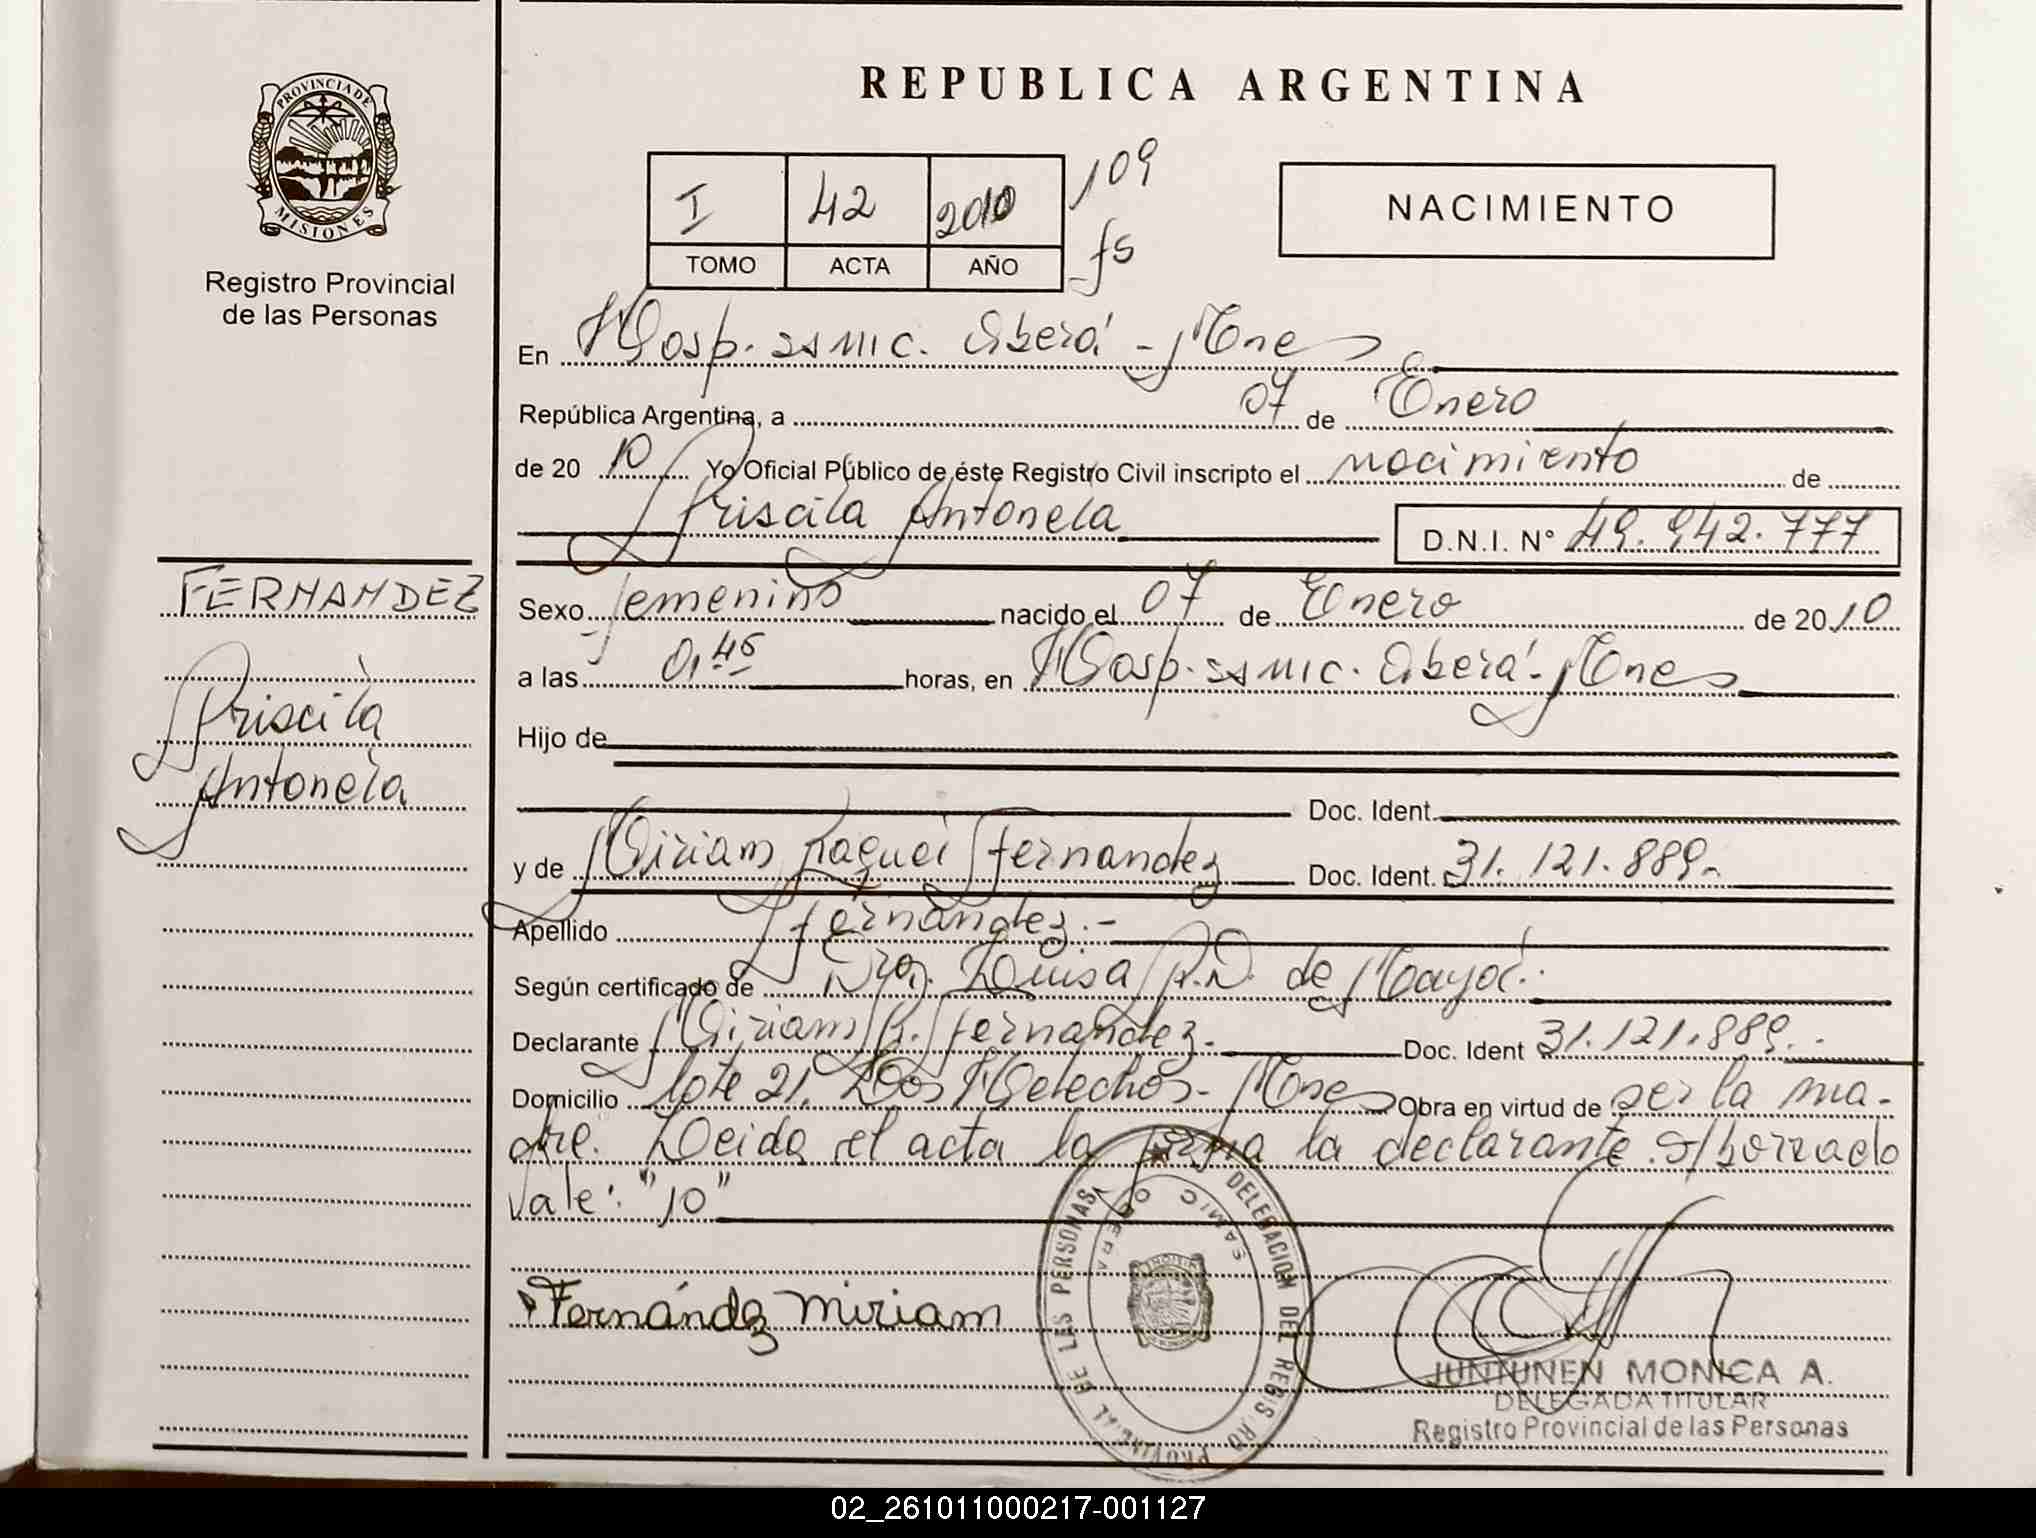 PROVINCIA DE
MISIONES
Registro Provincial
de las Personas
REPUBLICA ARGENTINA
I 42 2010 109
TOMO ACTA AÑO fs
NACIMIENTO
En Hosp. SAMIC. Oberá - Mnes
República Argentina, a 07 de Enero
de 20 10 Yo Oficial Público de éste Registro Civil inscripto el nacimiento de
Priscila Antonela D.N.I. N° 49.942.777
FERNANDEZ
Priscila
Antonela
Sexo femenino nacido el 07 de Enero de 2010
a las 0,45 horas, en Hosp. SAMIC. Oberá - Mnes
Hijo de
Doc. Ident.
y de Miriam Raquel Fernandez Doc. Ident. 31.121.889.-
Apellido Fernandez.-
Según certificado de Dra. Luisa R.D. de
Declarante Miriam R. Fernandez.- Doc. Ident 31.121.889.-
Domicilio lote 21. Dos Helechos - Mnes Obra en virtud de ser la ma-
dre. Leida el acta la firma la declarante. s/borrado
vale: "10"
Fernández Miriam
DELEGACION DEL REGISTRO PROVINCIAL DE LAS PERSONAS
SAMIC OBERA
JUNTUNEN MONICA A.
DELEGADA TITULAR
Registro Provincial de las Personas
02_261011000217-001127